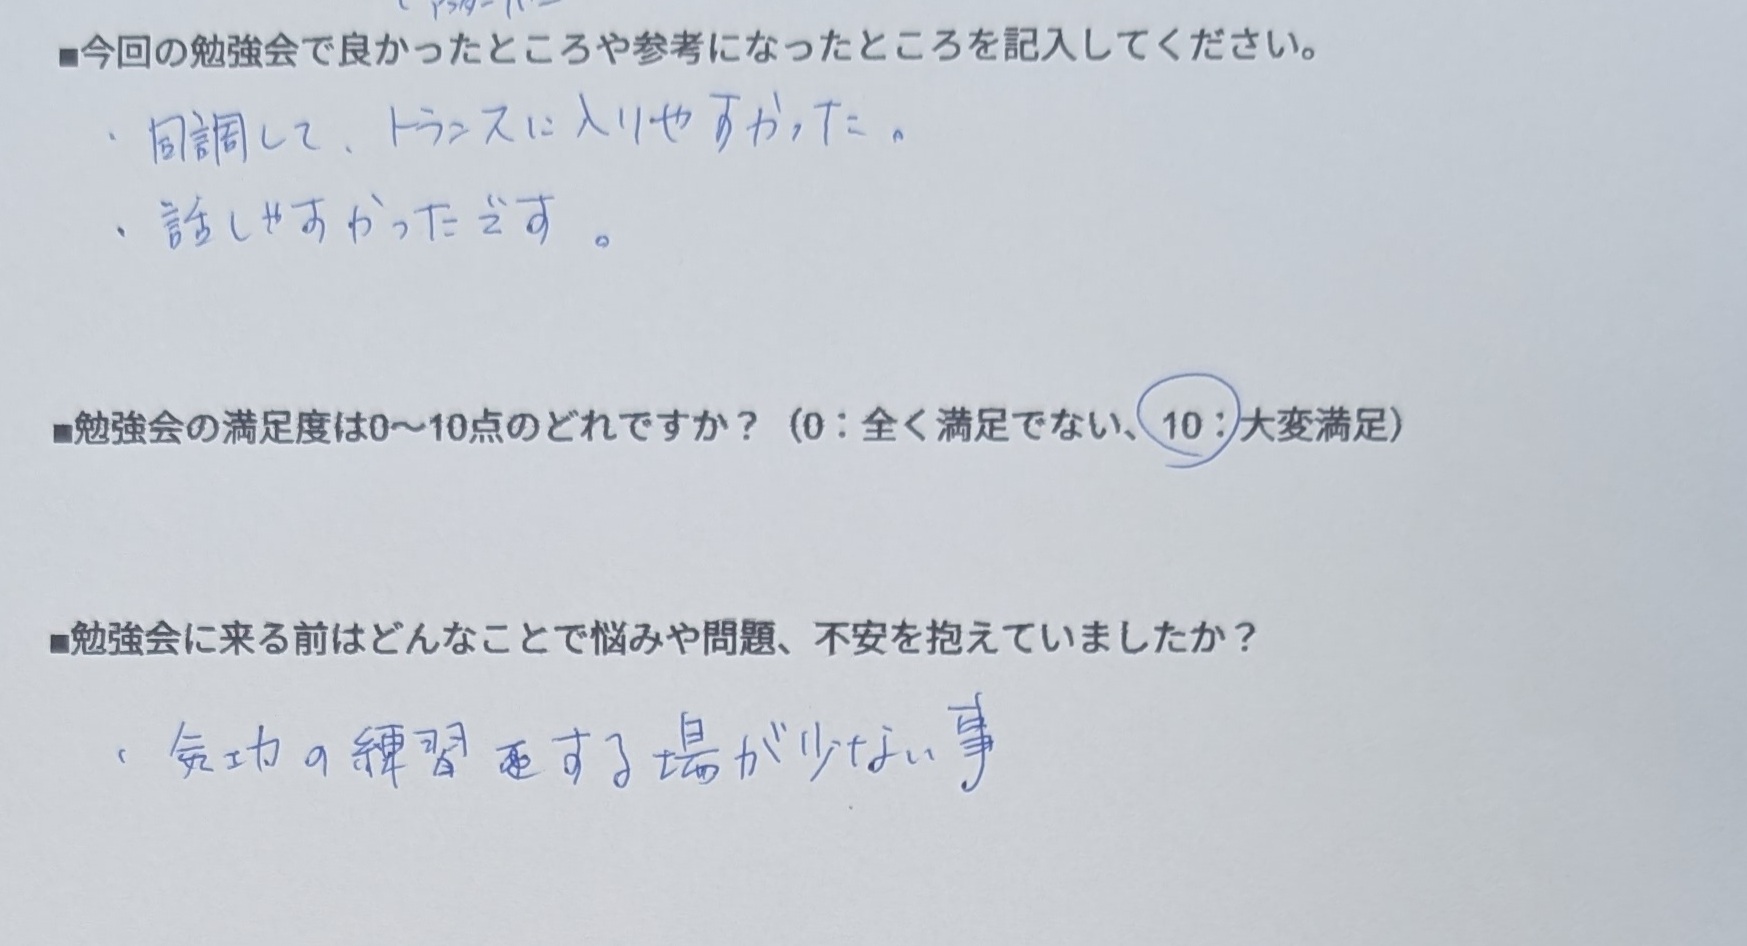 ■今回の勉強会で良かったところや参考になったところを記入してください。
・同調して、トランスに入りやすかった。
・話しやすかったです。
■勉強会の満足度は0～10点のどれですか？（0：全く満足でない、10：大変満足）
■勉強会に来る前はどんなことで悩みや問題、不安を抱えていましたか？
・気功の練習をする場が少ない事